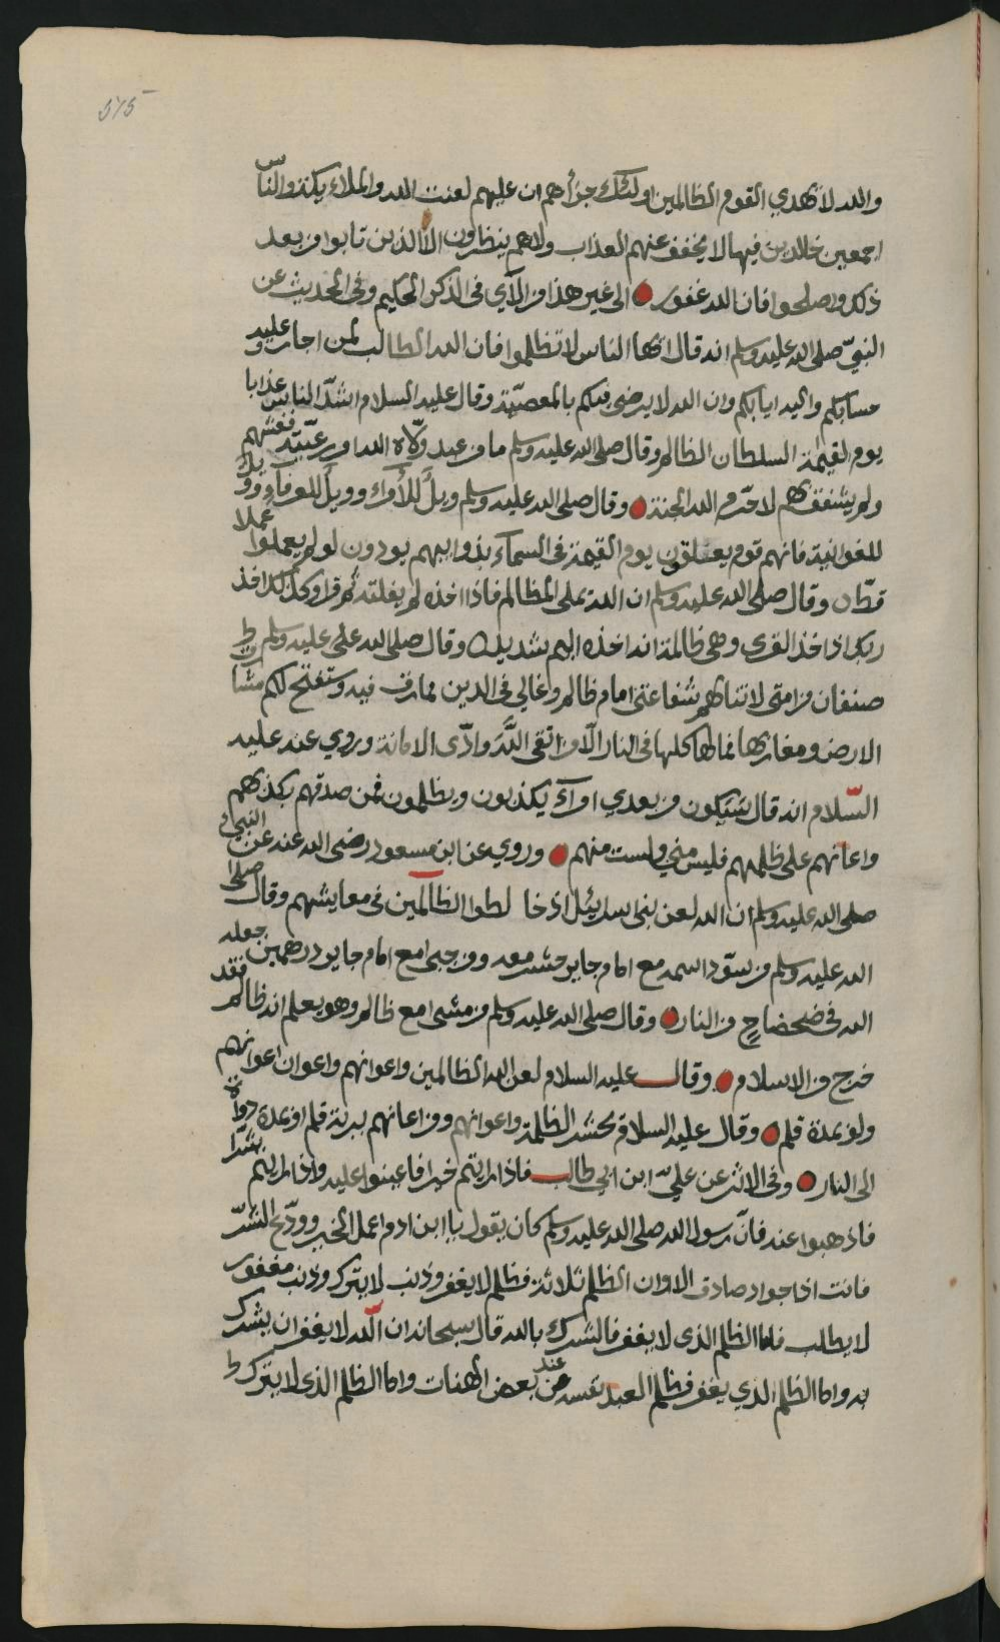 575
والله لا يهدي القوم الظالمين اولئك جزاهم ان عليهم لعنت الله والملائكة والناس
اجمعين خالدين فيها لا يخفف عنهم العذاب ولاهم ينظرون الا الذين تابوا من بعد
ذلك واصلحوا فان الله غفور الى غير هذا من الآي في الذكر الحكيم وفي الحديث عن
النبيّ صلى الله عليه وسلم انه قال ايها الناس لا تظلموا فان الله الطالب لمن اجار وعليه
حسابكم واليه ايابكم وان الله لا يرضى منكم بالمعصيّة وقال عليه السلام اشدّ الناس عذابا
يوم القيمة السلطان الظالم وقال صلى الله عليه وسلم ما من عبد ولّاه الله امر رعيّته فغشهم
ولم يشفق بهم لا حرّم الله الجنة وقال صلى الله عليه وسلم ويلٌ للأمراء وويلٌ للعرفاء وويل
للعوانية فانهم قوم يعتلقون يوم القيمة في السماء بذوابهم يودون لو لم يعملوا عملا
قطّ وقال صلى الله عليه وسلم ان الله يملي الظالم فاذا اخذه لم يفلته ثم قرا وكذلك اخذ
ربك اذا اخذ القرى وهي ظالمة ان اخذه اليم شديد وقال صلى الله على عليه وسلم
صنفان من امتى لا تنالهم شفاعتى امام ظالم وغالي في الدين مارق فيه وستفتح لكم مشا
الارض ومغاربها عمالها كلها في النار الّا من اتقى اللَّهَ وادّى الامانة وروي عنه عليه
السّلام انه قال سَيَكون من بعدي امرآء يكذبون ويظلمون فمن صدقهم بكذبهم
واعانهم على ظلمهم فليس مني ولست منهم وروي عن ابن مسعود رضى الله عنه عن النبي
صلى الله عليه وسلم ان الله لعن بنى اسرايئل اذ خا لطوا الظالمين في معايشهم وقال صلى
الله عليه وسلم من سوّد اسمه مع امام جاير حشر معه ومن جبى مع امام جاير درهمين جعله
الله في ضحضاحٍ من النار وقال صلى الله عليه وسلم من مشى مع ظالم وهو يعلم انه ظالم فقد
خرج من الاسلام وقال عليه السلام لعن الله الظالمين واعوانهم واعوان اعوانهم
ولو بمدة قلم وقال عليه السلام يحشر الظلمة واعوانهم ومن اعانهم ببرية قلم او بمدة دواة
الى النار وفي الاثر عن عليّ ابن ابي طالب فاذا رايتم خيرا فاعينوا عليه واذا رايتم شرّا
فاذهبوا عنه فانّ رسول الله صلى الله عليه وسلم كان يقول يا ابن ادم اعمل الخير وودّع الشرّ
فانت اذا جواد صادق الا وان الظلم ثلاثة فظلم لا يغفر وذنب لا يترك وذنب مغفور
لا يطلب فاما الظلم الذى لا يغفر فالشرك بالله قال سبحانه ان الّله لا يغفر ان يشرك
به واما الظلم الذي يغفر فظلم العبد نفسه عند بعض الهنات واما الظلم الذى لا يترك